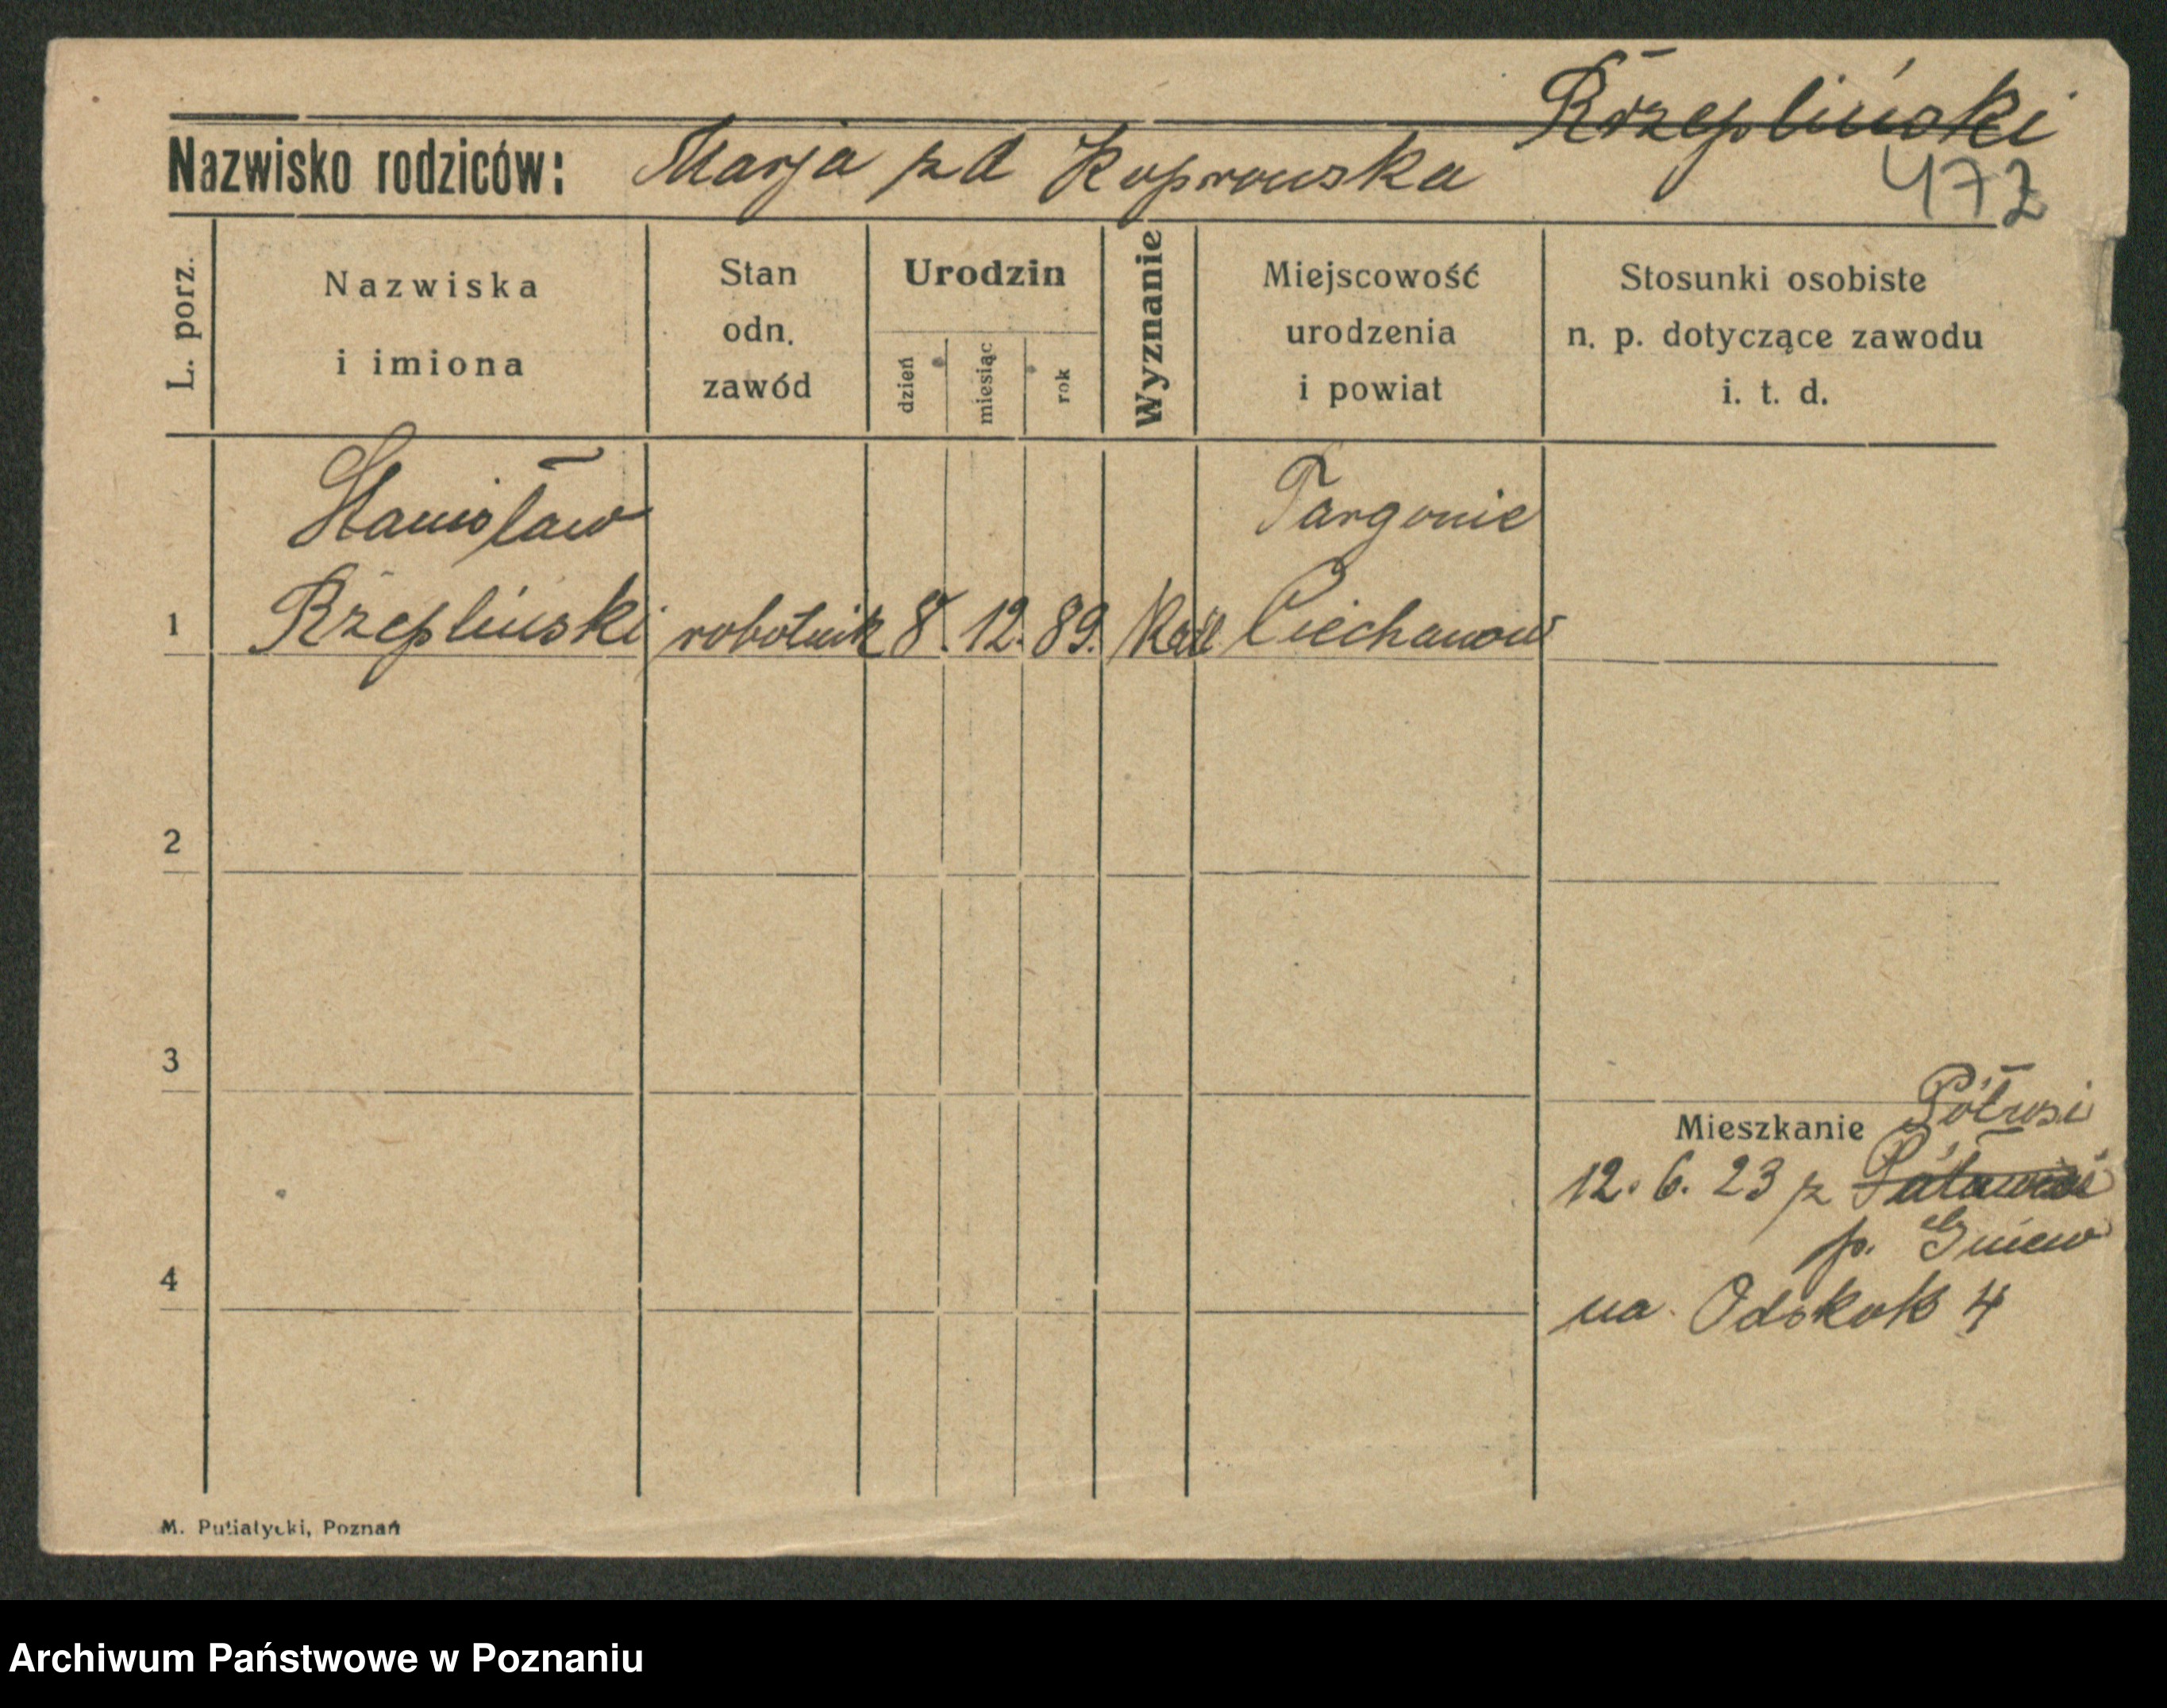 Rzepliński
Nazwisko rodziców: Marja zd Koprowska
472
L. porz.
Nazwiska
i imiona
Stan
odn.
zawód
Urodzin
dzień
miesiąc
rok
Wyznanie
Miejscowość
urodzenia
i powiat
Stosunki osobiste
n. p. dotyczące zawodu
i. t. d.
Stanisław
Targonie
1 Rzepliński robotnik 8. 12. 89. Kat. Ciechanow
2
3
Mieszkanie Półwsi
12. 6. 23 z
p. Gniew
4
na Odskok 4
M. Putiatycki, Poznań
Archiwum Państwowe w Poznaniu